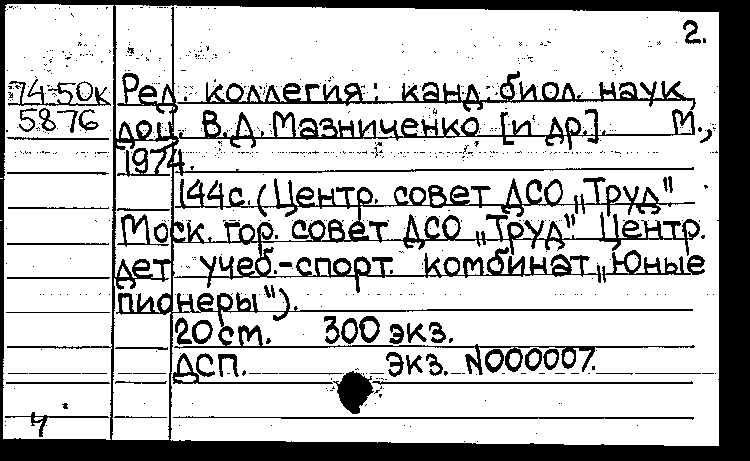 2.
74-50к Ред. коллегия: канд. биол. наук,
5876 доц. В.Д. Мазниченко [и др.]. М.,
1974.
144с. (Центр. совет ДСО „Труд"
Моск. гор. совет ДСО „Труд" Центр.
дет учеб.-спорт. комбинат „Юные
пионеры").
20 см. 300 экз.
ДСП. экз. N000007.
4